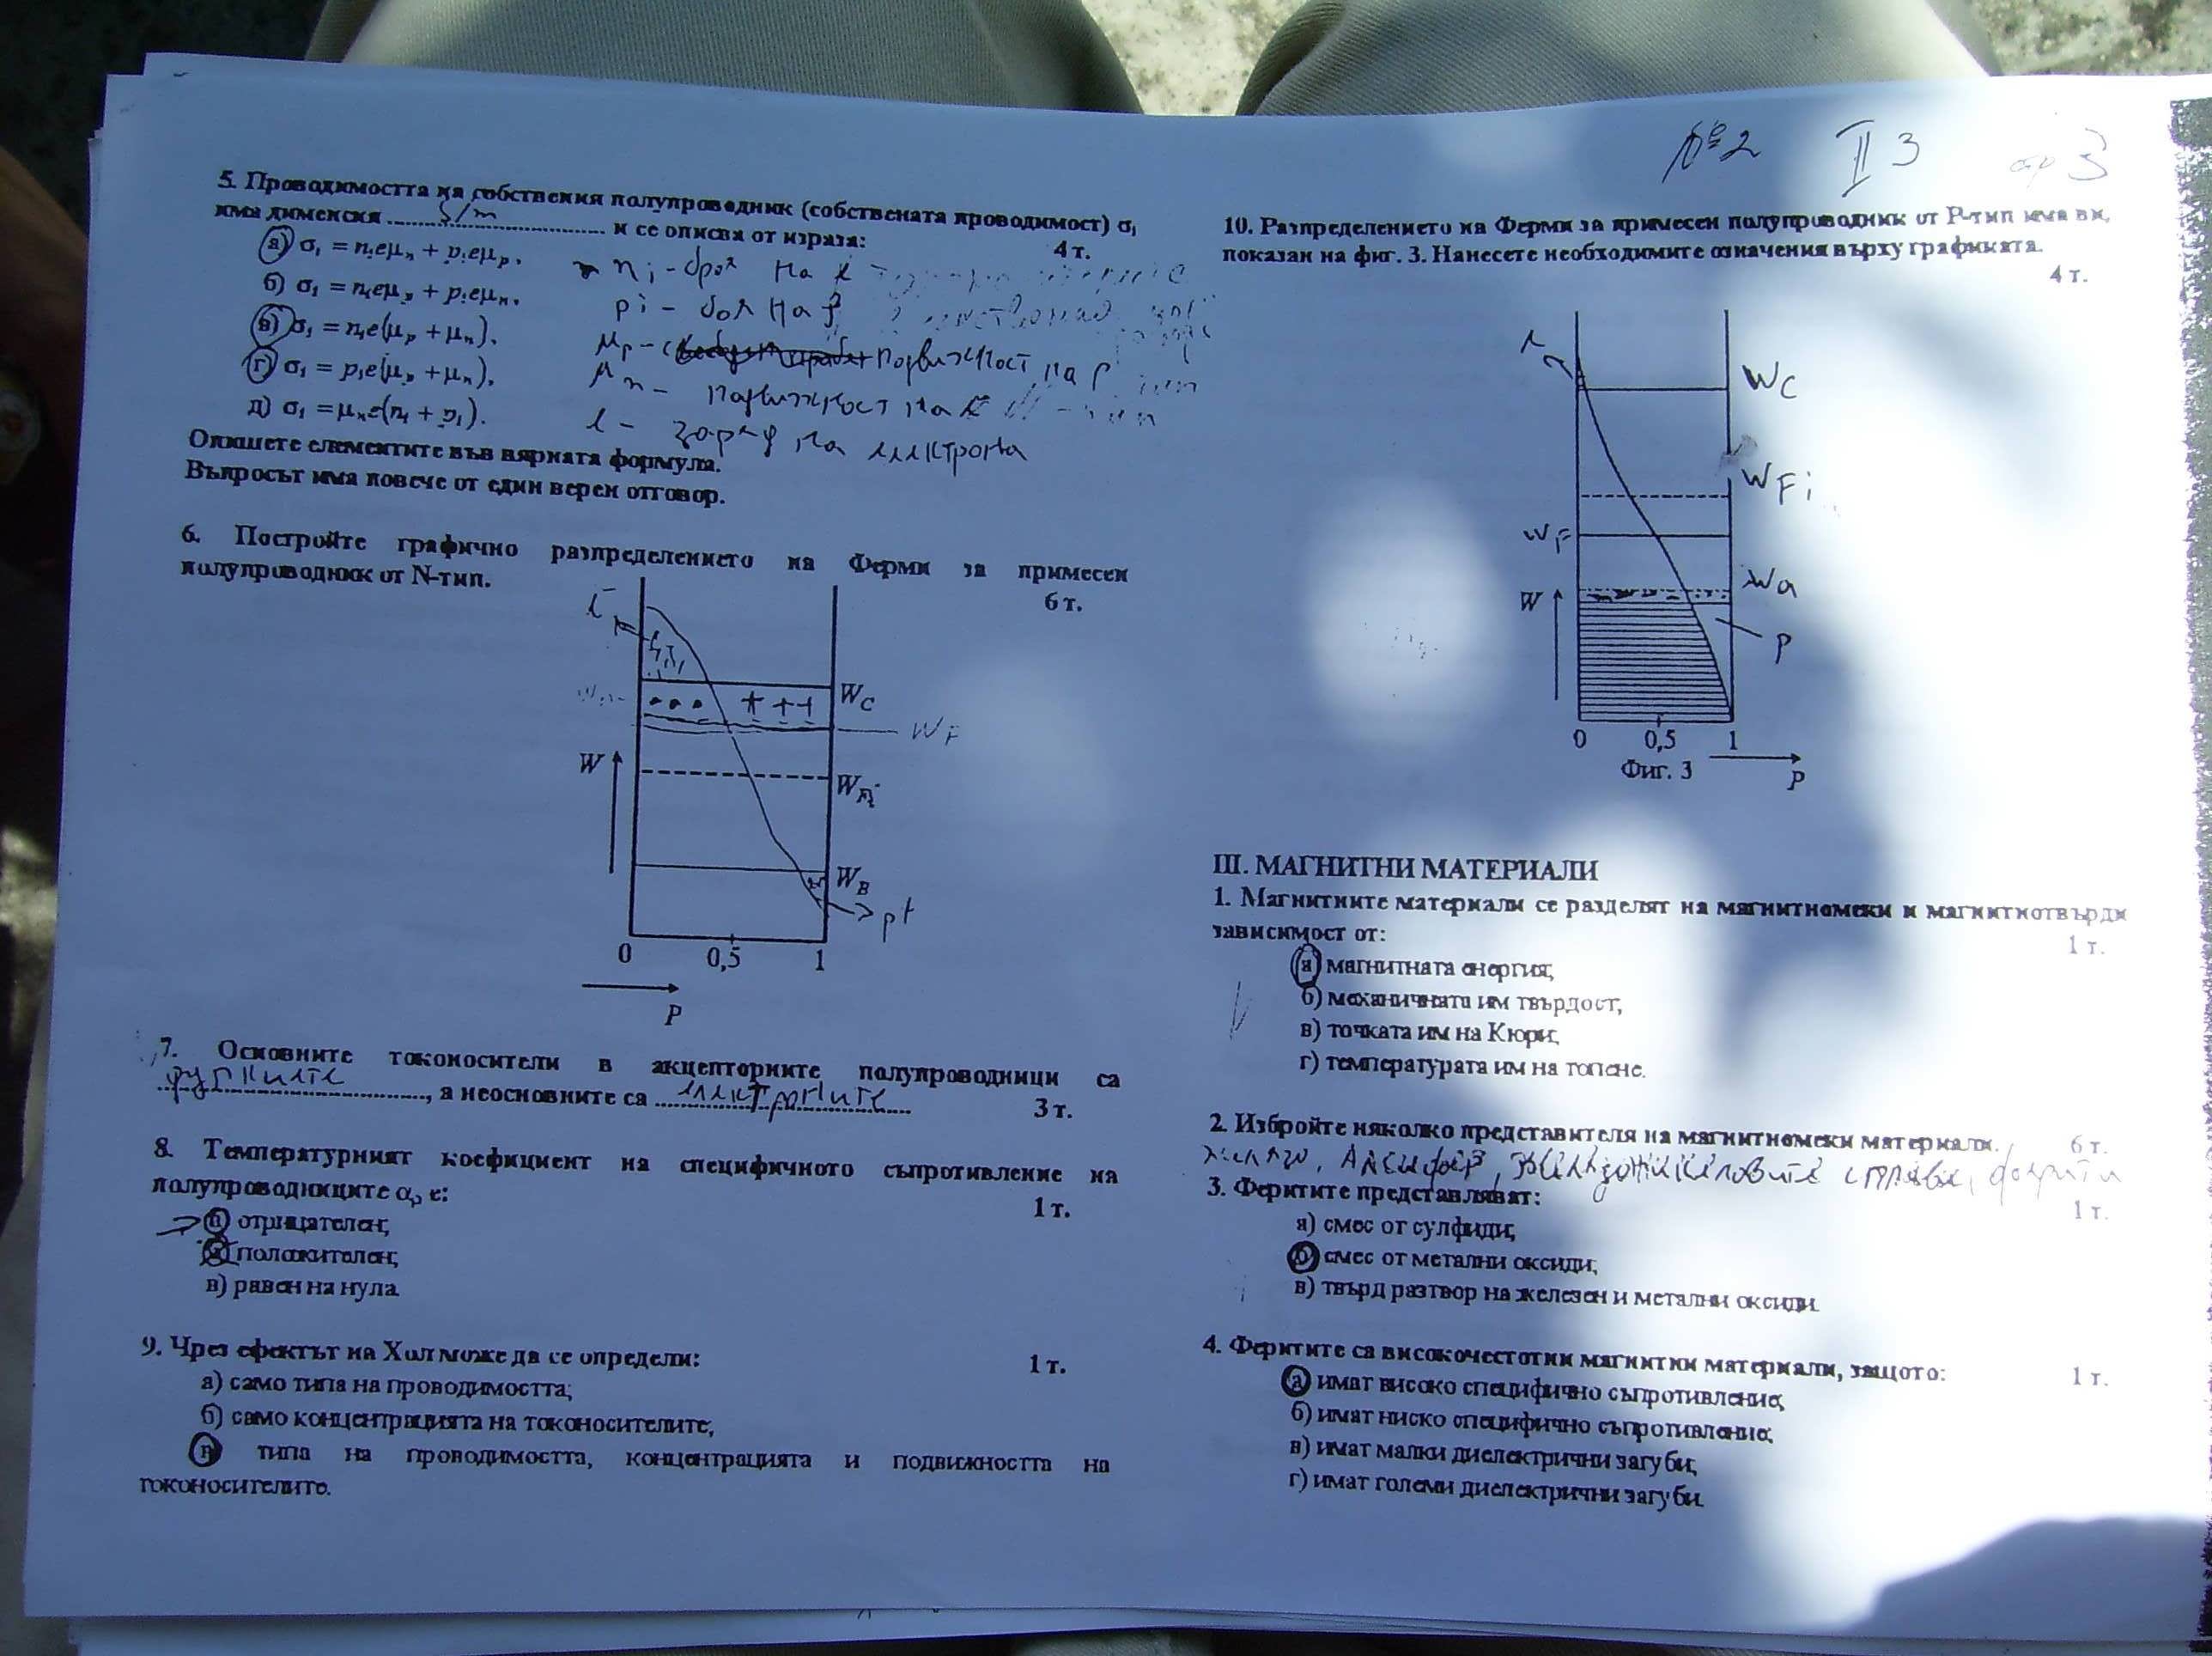 №2 II 3 стр 3
5. Проводимостта на собствения полупроводник (собствената проводимост) σᵢ
има дименсия ....... S/m ....... и се описва от израза:
4 т.
а) σᵢ = nᵢeμₙ + pᵢeμₚ.
б) σᵢ = nᵢeμₚ + pᵢeμₙ.
в) σᵢ = nᵢe(μₚ + μₙ).
г) σᵢ = pᵢe(μₚ + μₙ).
д) σᵢ = μₙe(nᵢ + pᵢ).
nᵢ - брой на
pᵢ - бол на
μₚ - подвижност на p
μₙ - подвижност на
e - заряд на електрона
Опишете елементите във вярната формула.
Въпросът има повече от един верен отговор.
6. Постройте графично разпределението на Ферми за примесен
полупроводник от N-тип.
6 т.
W_C
W_F
W
W_Fi
W_B
p+
0 0,5 1
P
7. Основните токоносители в акцепторните полупроводници са
дупките, а неосновните са електроните
3 т.
8. Температурният коефициент на специфичното съпротивление на
полупроводниците αρ е:
1 т.
отрицателен;
положителен;
в) равен на нула.
9. Чрез ефектът на Хол може да се определи:
1 т.
а) само типа на проводимостта;
б) само концентрацията на токоносителите;
в) типа на проводимостта, концентрацията и подвижността на
токоносителите.
10. Разпределението на Ферми за примесен полупроводник от P-тип има ви,
показан на фиг. 3. Нанесете необходимите означения върху графиката.
4 т.
W_C
W_Fi
W_F
Wa
W
p
0 0,5 1
Фиг. 3
P
III. МАГНИТНИ МАТЕРИАЛИ
1. Магнитните материали се разделят на магнитномеки и магнитнотвърди
зависимост от:
1 т.
а) магнитната енергия;
б) механичната им твърдост;
в) точката им на Кюри;
г) температурата им на топене.
2. Избройте няколко представителя на магнитномеки материали.
6 т.
желязо, Алсифер, желязоникеловите сплави, ферити
3. Феритите представляват:
1 т.
а) смес от сулфиди;
б) смес от метални оксиди;
в) твърд разтвор на железен и метални оксиди.
4. Феритите са високочестотни магнитни материали, защото:
1 т.
а) имат високо специфично съпротивление;
б) имат ниско специфично съпротивление;
в) имат малки диелектрични загуби;
г) имат големи диелектрични загуби.